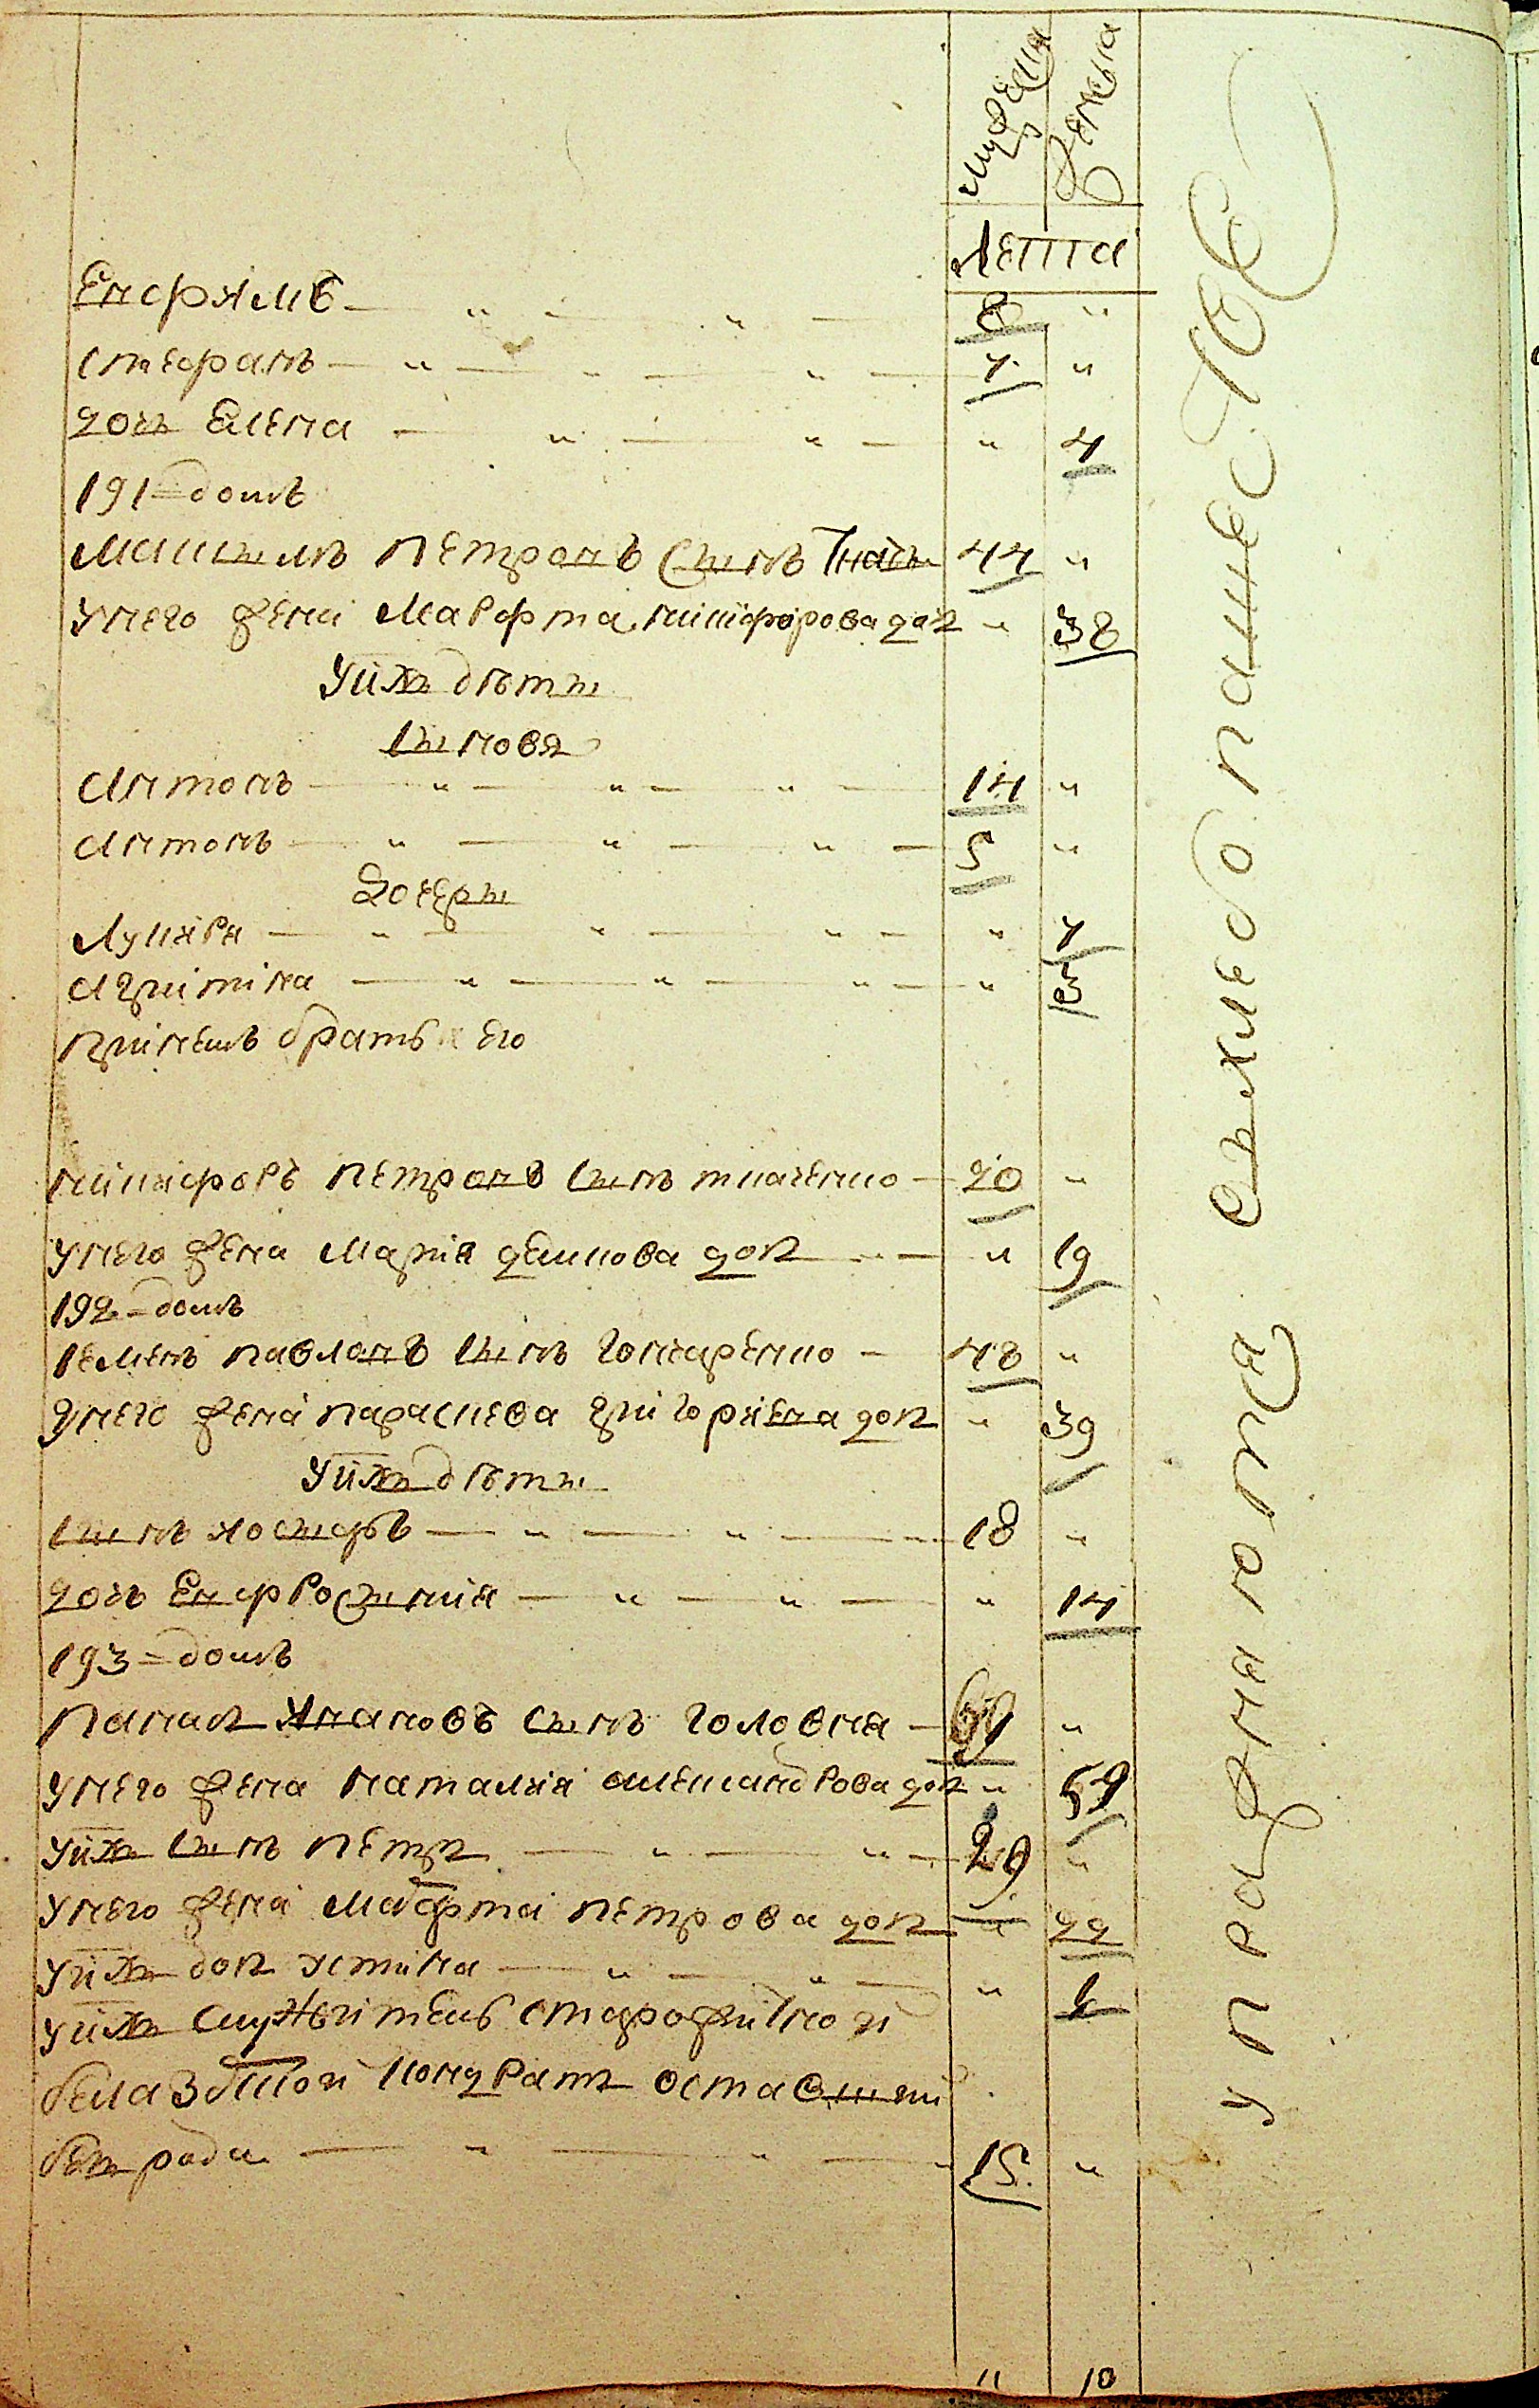 мужеска женска
лета
Евфимъ — " — " — 8 "
Стефанъ — " — " — " — 7 "
дочъ Елена — " — " — " 4
191 = домъ
Максимъ Петровъ сынъ Ткачен 44 "
У него жена Марфта Никифорова доч " 38
У них дѣты
Сыновя
Антонъ — " — " — " — 14 "
Антонъ — " — " — " — 5 "
Дочеры
Лукиря — " — " — " — " 7
Агрипина — " — " — " — " 3
Примешъ братъ его
Никифоръ Петровъ сынъ Ткаченко — 20 "
У него жена Мария Демкова доч — " 19
192 = домъ
Семенъ Павловъ сынъ Гончаренко — 48 "
У него жена Параскева Григориева доч " 39
У них дѣты
Сынъ Иосифъ — " — " — 18 "
дочъ Евфросиния — " — " — " 14
193 = домъ
Панас Ивановъ сынъ Головня — "
У него жена Наталия Александрова доч " 59
У них сынъ Петр — " — " — 29 "
У него жена Марфта Петрова доч — " 22
У них доч Устина — " — " — "
У них служитель
Кондрат оставший
без рода — " — " — 15 "
" 10
упражняются в хлебопашестве